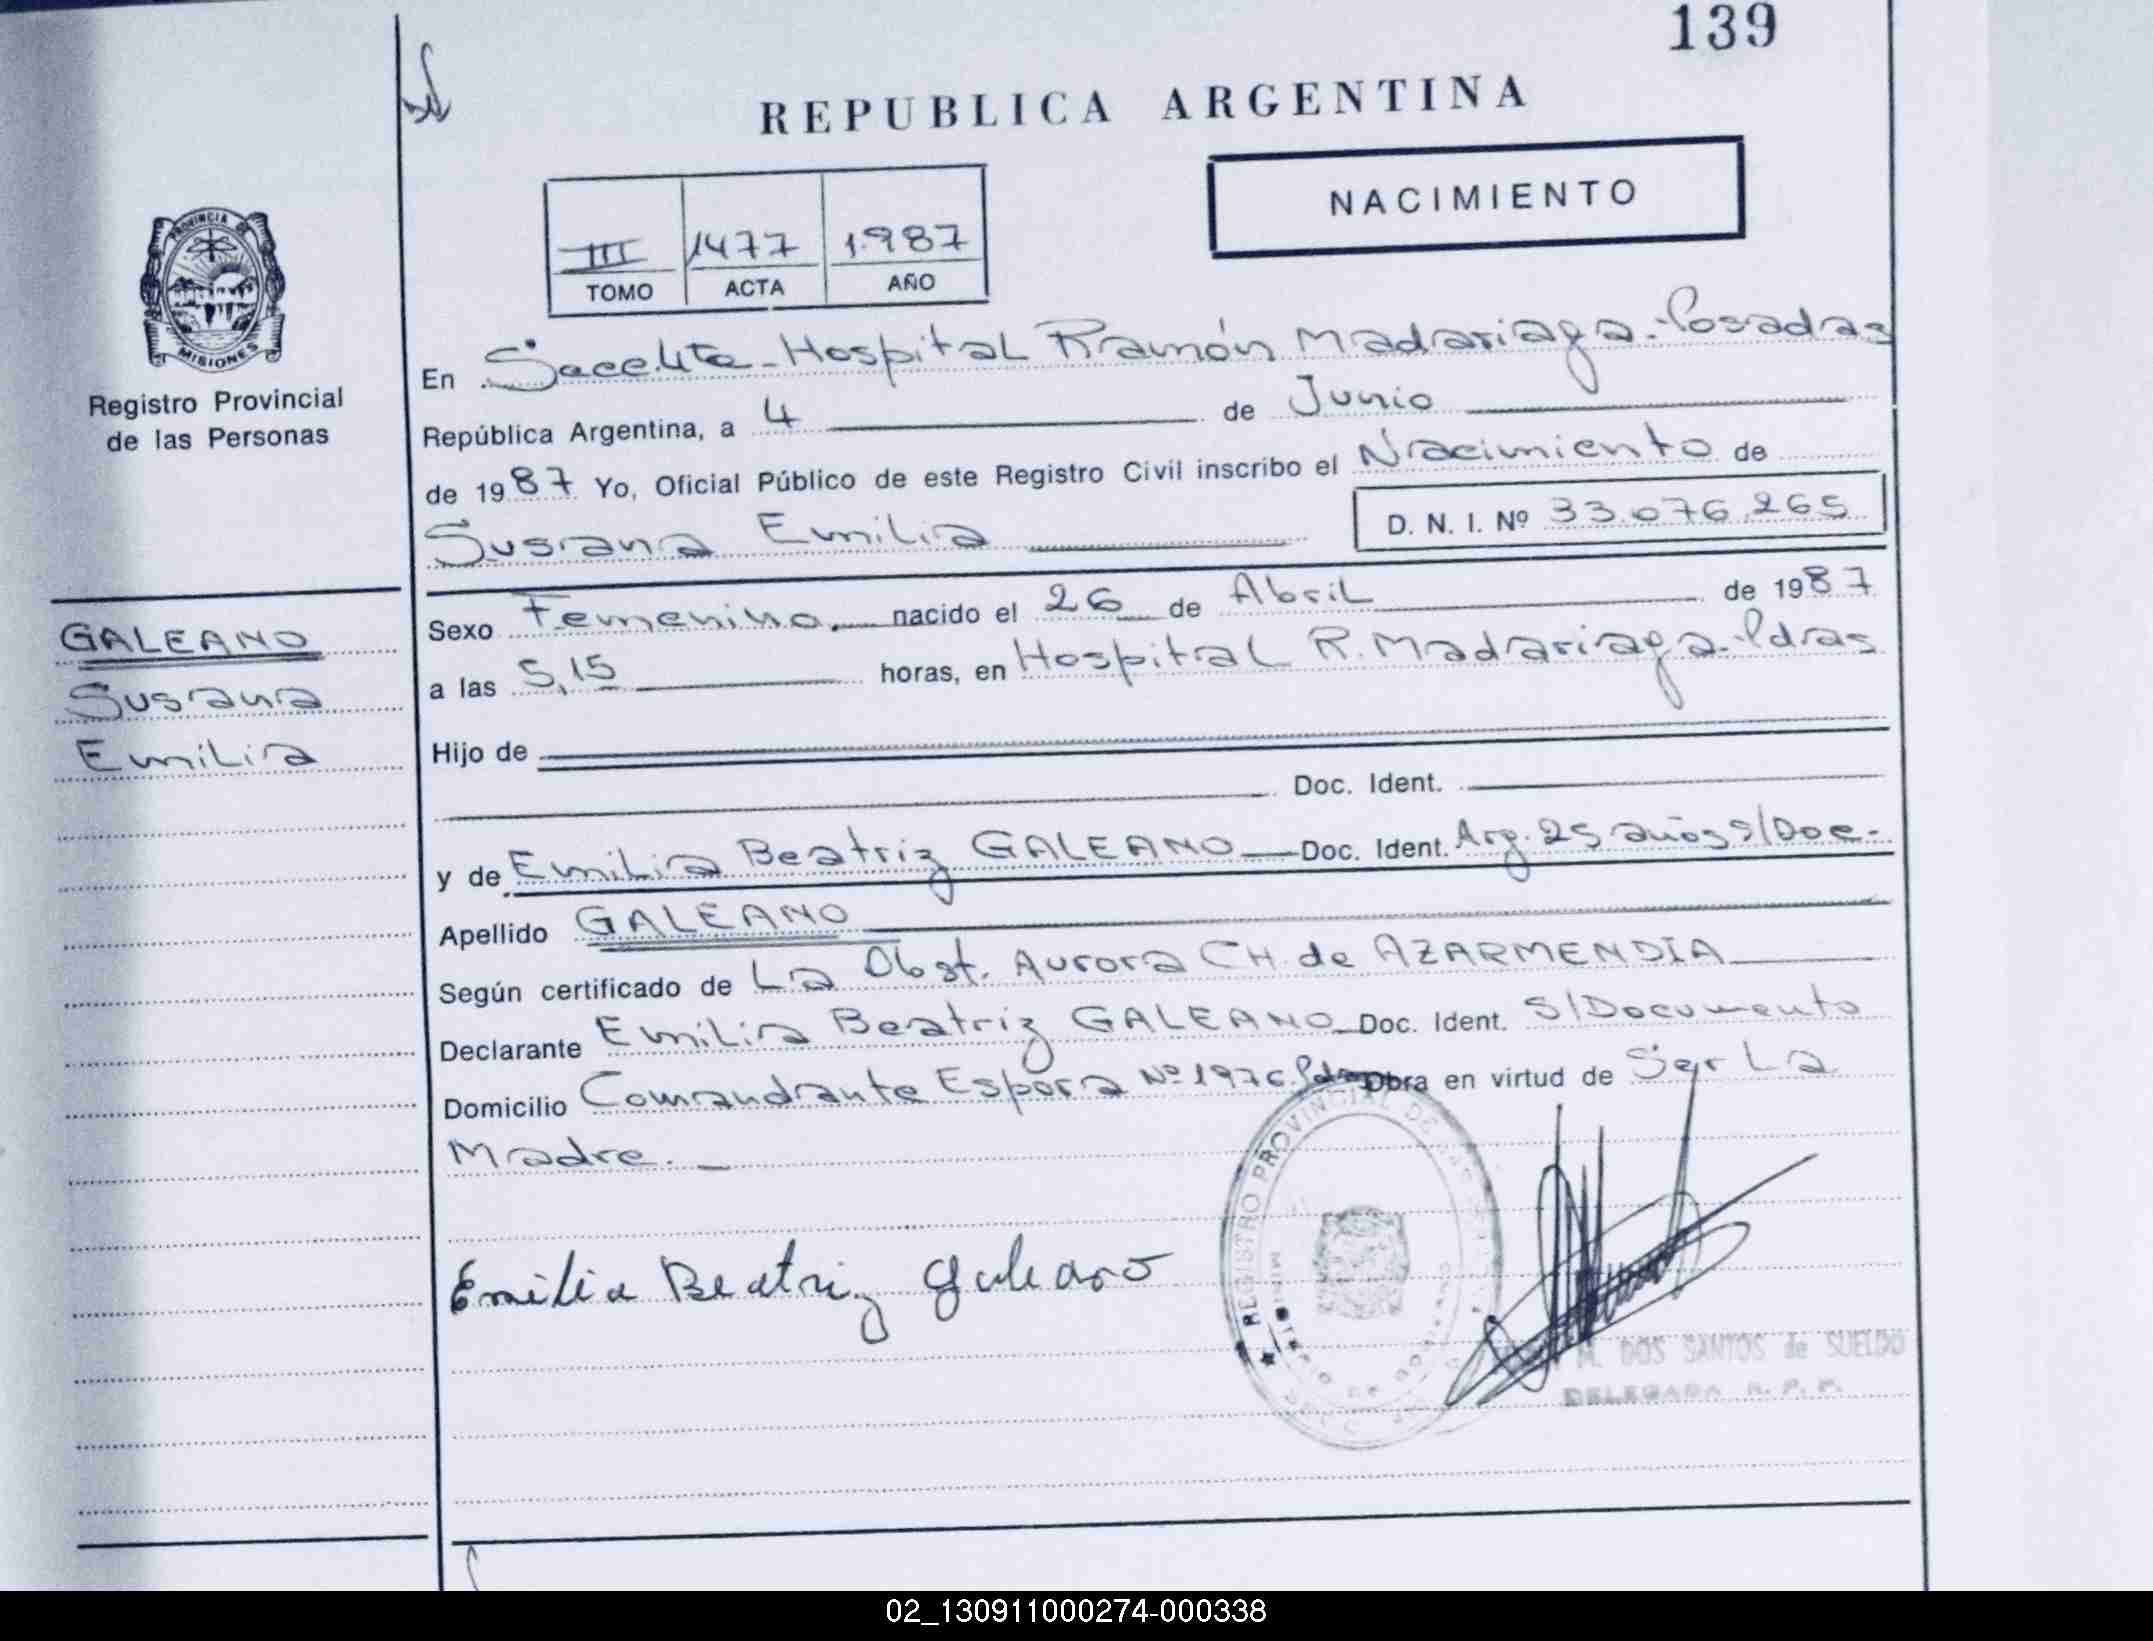 139
REPUBLICA ARGENTINA
NACIMIENTO
III 1477 1.987
TOMO ACTA AÑO
PROVINCIA DE
MISIONES
Registro Provincial
de las Personas
En Sacelite - Hospital Ramón Madariaga - Posadas
República Argentina, a 4 de Junio
de 1987 Yo, Oficial Público de este Registro Civil inscribo el Nacimiento de
Susana Emilia D. N. I. Nº 33.076.265
GALEANO
Susana
Emilia
Sexo Femenino. nacido el 26 de Abril de 1987
a las 5,15 horas, en Hospital R. Madariaga - Pdas
Hijo de
Doc. Ident.
y de Emilia Beatriz GALEANO Doc. Ident. Arg. 25 años S/Doc.-
Apellido GALEANO
Según certificado de La Obst. Aurora CH. de AZARMENDIA
Declarante Emilia Beatriz GALEANO Doc. Ident. S/Documento
Domicilio Comandante Espora Nº 1976 Pdas Obra en virtud de Ser La
Madre.
Emilia Beatriz Galeano
REGISTRO PROVINCIAL DE LAS
MINISTERIO DE GOBIERNO
M. DOS SANTOS de SUELDO
DELEGADA R. P. P.
02_130911000274-000338